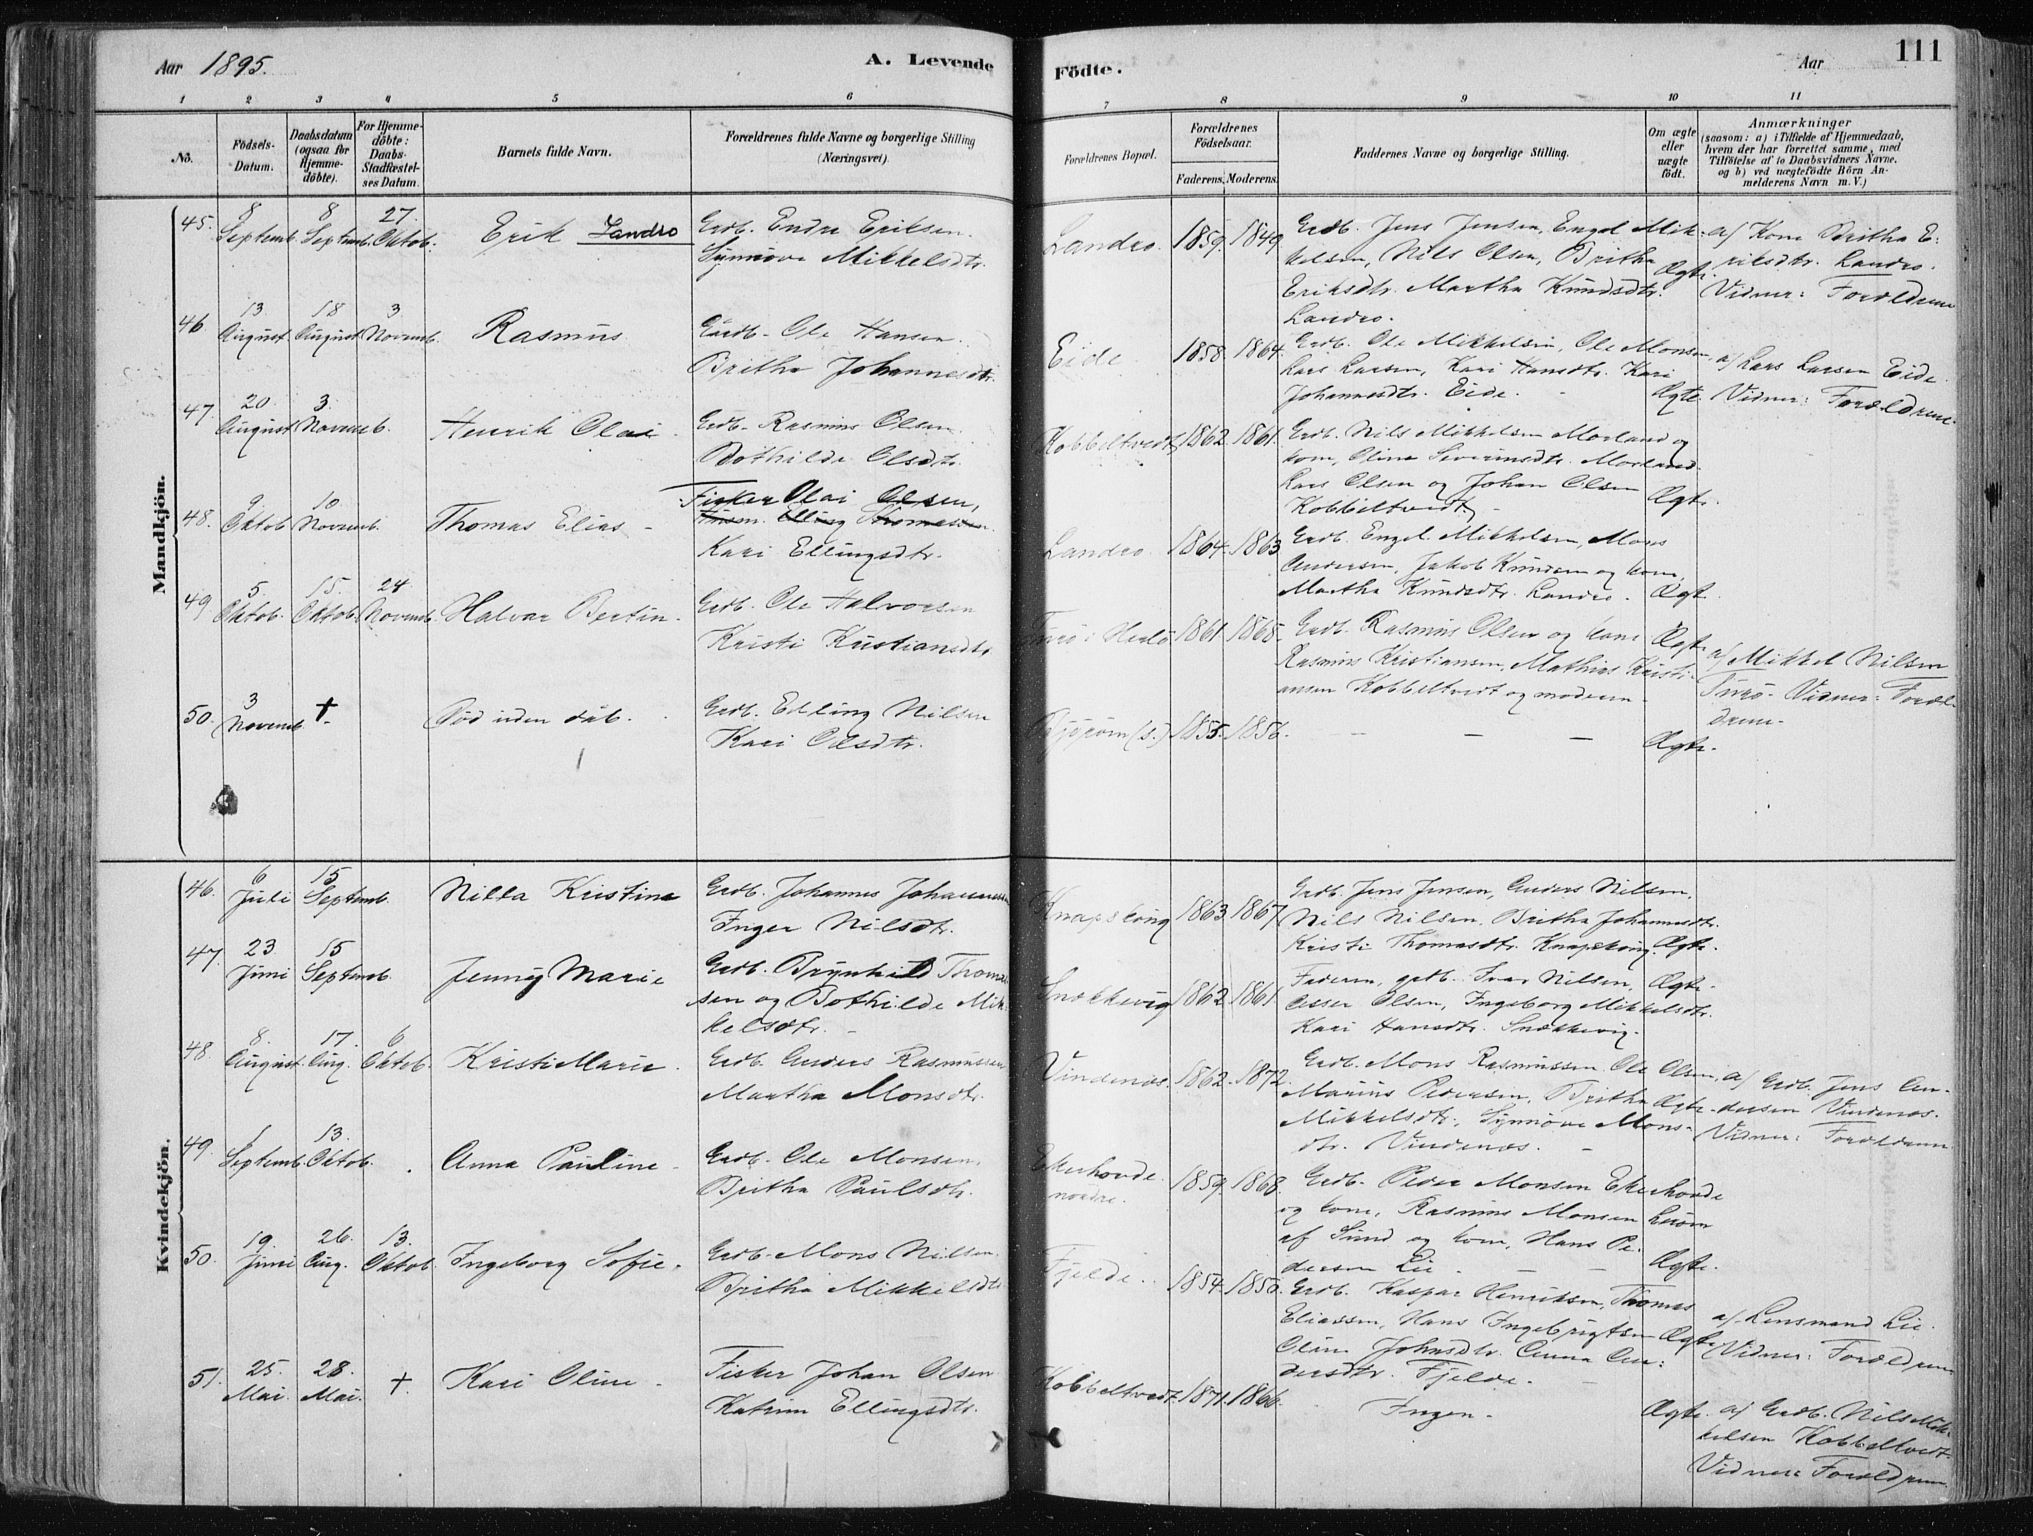 Aar 1895.
A. Levende Födte.
Aar
111
1 2 3 4 5 6 7 8 9 10 11
No.
Födsels-Datum.
Daabsdatum (ogsaa for Hjemme-döbte).
For Hjemme-döbte: Daabs-Stadfæstel-ses Datum.
Barnets fulde Navn.
Forældrenes fulde Navne og borgerlige Stilling (Næringsvei).
Forældrenes Bopæl.
Forældrenes Födselsaar.
Faderens. Moderens.
Faddernes Navne og borgerlige Stilling.
Om ægte eller uægte födt.
Anmærkninger
(saasom: a) i Tilfælde af Hjemmedaab, hvem der har forrettet samme, med Tilföielse af to Daabsvidners Navne. og b) ved uægtefödte Börn An-melderens Navn m. V.)
Mandkjön.
45. 8 Septemb. 8 Septemb. 27. Oktob. Erik Landro
Grdb. Endre Eriksen.
Synnöve Mikkelsdtr.
Landro. 1859. 1849.
Grdb. Jens Jensen, Engel Mik-
kelsen, Nils Olsen, Britha
Eriksdtr. Martha Knudsdtr.
Landro.
Ægte.
a/ Kone Britha E-
riksdtr. Landro.
Vidner: Forældrene
46. 13. August. 18 August 3 Novemb. Rasmus
Gardb. Ole Hansen.
Britha Johannesdtr.
Eide 1858. 1864.
Grdb. Ole Mikkelsen, Ole Monsen,
Lars Larsen, Kari Hansdtr. Kari
Johannesdtr. Eide.
Ægte.
a/ Lars Larsen Eide.
Vidner: Forældrene.
47. 20 August. 3. Novemb. Henrik Olai
Grdb. Rasmus Olsen
Bothilde Olsdtr.
Kobbeltvedt 1862. 1861.
Grdb. Nils Mikkelsen Morland og
kone, Oline Severinsdtr. Morland.
Lars Olsen og Johan Olsen
Kobbeltvedt
Ægte.
48. 9 Oktob 10 Novemb. Thomas Elias
Fisker Olai Olsen,
Kari Ellingsdtr.
Landro. 1864. 1863
Grdb. Engel Mikkelsen, Mons
Andersen, Jakob Knudsen og kone,
Martha Knudsdtr. Landro.
Ægte.
49. 5 Oktob. 15. Oktob. 24 Novemb. Halvar Bertin.
Grdb. Ole Halvorsen
Kristi Kristiansdtr.
Turö i Herlö 1861. 1868.
Grdb. Rasmus Olsen og kone
Rasmus Kristiansen, Mathias Kristi-
ansen Kobbeltvedt og moderen
Ægte
a/ Mikkel Nilsen
Turö. Vidner: Foræl-
drene.
50. 3 Novemb. † Död uden dåb.
Grdb. Elling Nilsen
Kari Olsdtr.
(s.) 1855. 1856.
Ægte.
Kvindekjön.
46. 6 Juli 15 Septemb. Nilla Kristine
Grdb. Johannes Johannessen
Inger Nilsdtr.
Knapskog 1863. 1867.
Grdb. Jens Jensen, Anders Nilsen,
Nils Nilsen, Britha Johannesdtr.
Kristi Thomasdtr. Knapskog.
Ægte.
47. 23 Juni 15 Septemb. Jenny Marie
Grdb. Brynhild Thomas-
sen og Bothilde Mik-
kelsdtr.
Snekkevig 1862. 1861.
Faderen, grdb. Ivar Nilsen,
Asser Olsen, Ingeborg Mikkelsdtr.
Kari Hansdtr. Snekkevig.
Ægte.
48. 8. August. 17. Aug. 6 Oktob. Kristi Marie
Grdb. Anders Rasmussen
Martha Monsdtr.
Vindenæs. 1862. 1872.
Grdb. Mons Rasmussen, Ole Olsen,
Marius Pedersen, Britha
Mikkelsdtr. Synnöve Mons-
dtr. Vindenæs.
Ægte
a/ Grdb. Jens An-
dersen Vindenæs.
Vidner: Forældrene
49. 1 Septemb. 13. Oktob. Anna Pauline
Grdb. Ole Monsen.
Britha Paulsdtr.
Ekerhovde nordre. 1859. 1868.
Grdb. Peder Monsen Ekerhovde
og kone, Rasmus Monsen
af Sund og kone, Hans Pe-
dersen Lie
Ægte.
50. 19 Juni 26. Aug. 13. Oktob. Ingeborg Sofie.
Grdb. Mons Nilsen.
Britha Mikkelsdtr.
Fjelde. 1854. 1850.
Grdb. Kaspar Henriksen, Thomas
Eliassen, Hans Ingebrigtsen
Oline Johnsdtr. Anna An-
dersdtr. Fjelde.
Ægte
a/ Lensmand Lie.
Vidner: Forældrene
51. 25. Mai. 28. Mai. †. Kari Oline
Fisker Johan Olsen
Katrine Ellingsdtr.
Kobbeltvedt. 1871. 1866.
Ingen.
Ægte.
a/ Grdb. Nils Mik-
kelsen Kobbeltvedt.
Vidner: Forældrene